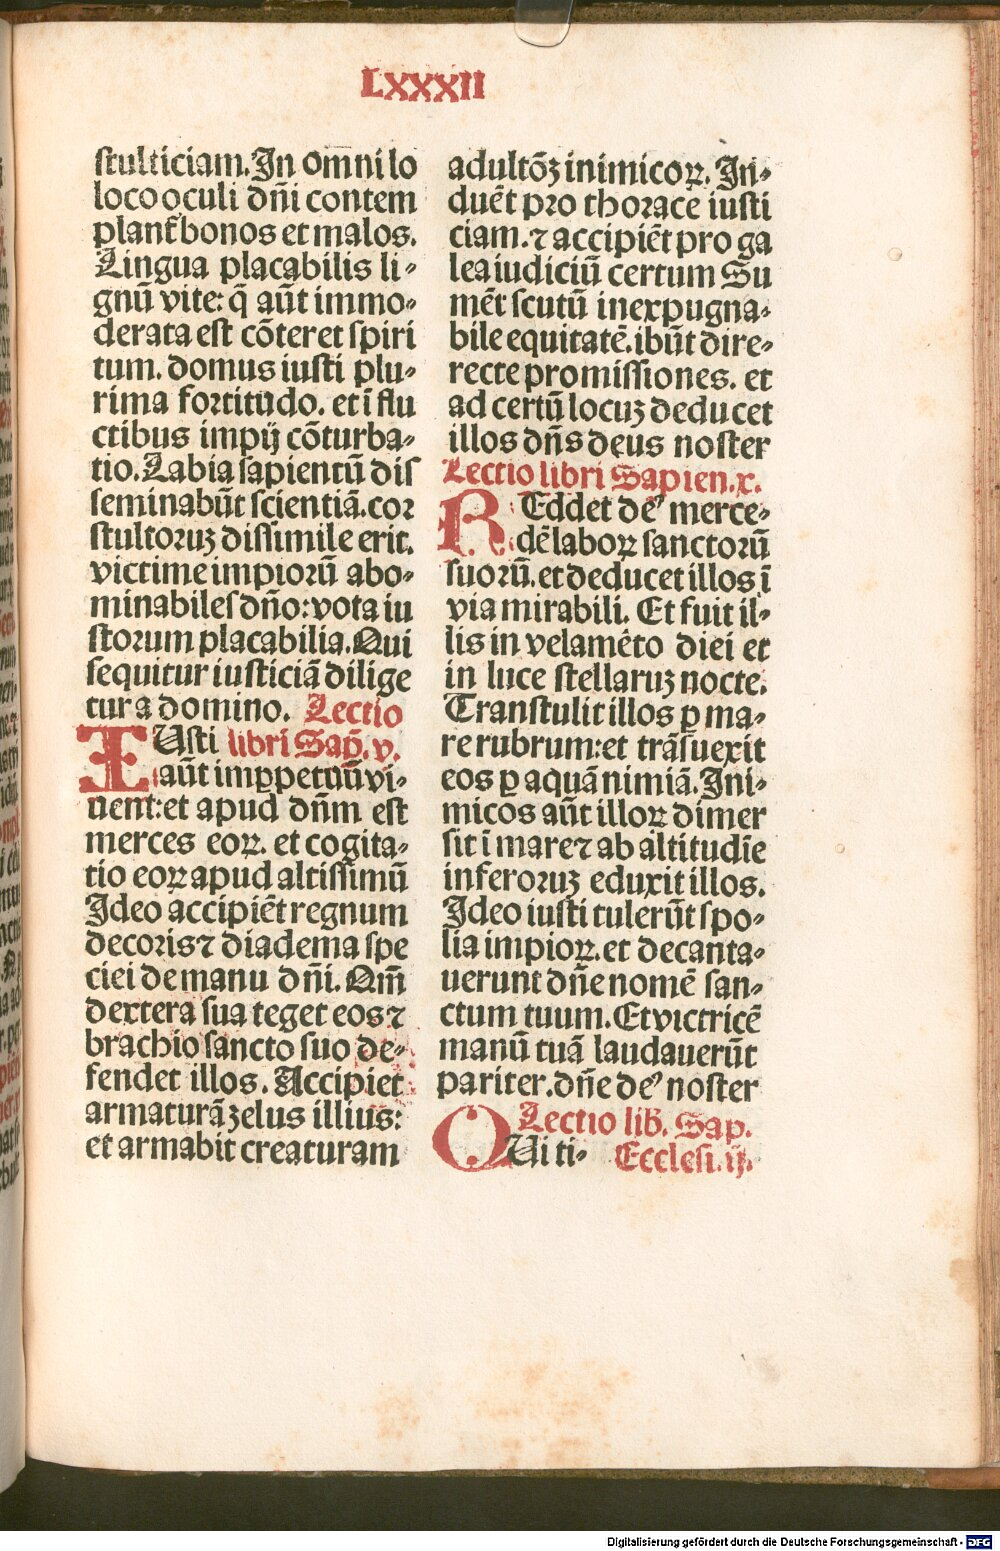 LXXXII
stulticiam. In omni lo
loco oculi dñi contem
plant̃ bonos et malos.
Lingua placabilis li-
gnū vite: q̄ aūt immo-
derata est cōteret spiri
tum. domus iusti plu-
rima fortitudo. et ī flu
ctibus impij cōturba-
tio. Labia sapientū dis
seminabūt scientiā. cor
stultoruz dissimile erit.
victime impiorū abo-
minabiles dño: vota iu
storum placabilia. Qui
sequitur iusticiā dilige
tur a domino. Lectio
IUsti libri Sap̄. v.
aūt imꝑpetuū vi-
uent: et apud dn̄m est
merces eoꝝ. et cogita-
tio eoꝝ apud altissimū
Ideo accipiēt regnum
decoris ⁊ diadema spe
ciei de manu dñi. Qm̄
dextera sua teget eos ⁊
brachio sancto suo de-
fendet illos. Accipiet
armaturā zelus illius:
et armabit creaturam
ad ultōꝫ inimicoꝝ. In-
duēt pro thorace iusti
ciam. ⁊ accipiēt pro ga
lea iudiciū certum Su
mēt scutū inexpugna-
bile equitatē. ibūt dire-
recte promissiones. et
ad certū locuz deducet
illos dñs deus noster
Lectio libri Sapien. x.
REddet de⁹ merce-
dē laboꝝ sanctorū
suorū. et deducet illos ī
via mirabili. Et fuit il-
lis in velamēto diei et
in luce stellaruz nocte.
Transtulit illos ꝑ ma-
re rubrum: et trāsuexit
eos ꝑ aquā nimiā. Ini-
micos aūt illoꝝ dimer
sit ī mare ⁊ ab altitudīe
inferoruz eduxit illos.
Ideo iusti tulerūt spo-
lia impioꝝ. et decanta-
uerunt dñe nomē san-
ctum tuum. Et victricē
manū tuā laudauerūt
pariter. dñe de⁹ noster
Lectio lib. Sap.
QUi ti- Ecclesi. ij.
Digitalisierung gefördert durch die Deutsche Forschungsgemeinschaft - DFG